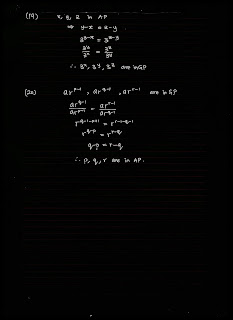 (19) x, y, z in AP
⇒ y-x = z-y
3^(y-x) = 3^(z-y)
3^y/3^x = 3^z/3^y
∴ 3^x, 3^y, 3^z are in GP
(20) ar^(p-1), ar^(q-1), ar^(r-1) are in GP
ar^(q-1)/ar^(p-1) = ar^(r-1)/ar^(q-1)
r^(q-1-p+1) = r^(r-1-q+1)
r^(q-p) = r^(r-q)
q-p = r-q
∴ p, q, r are in AP.